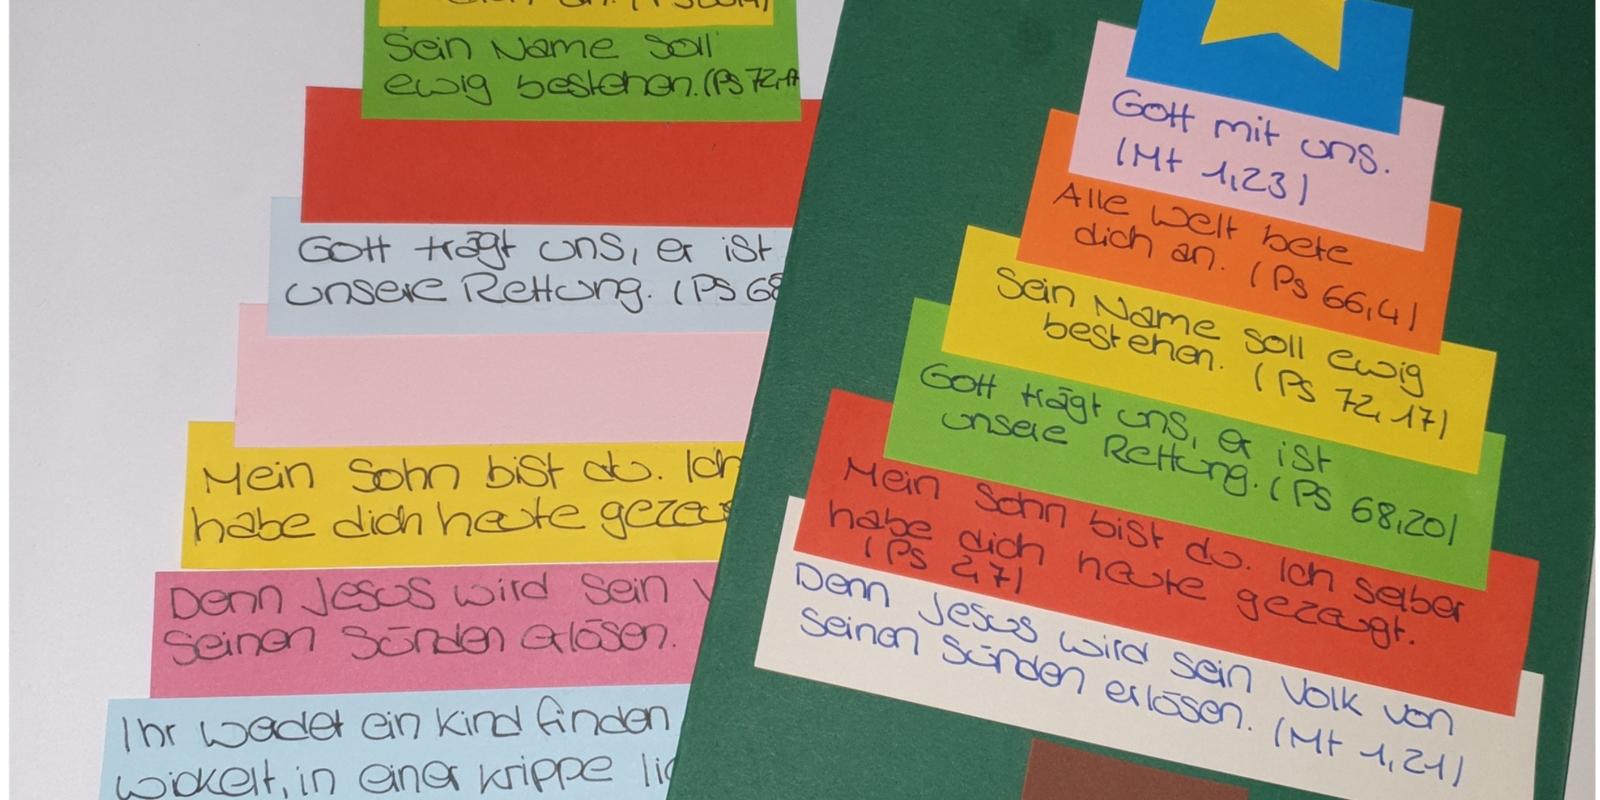 dich an. (Ps 66,4)
Sein Name soll
ewig bestehen. (Ps 72,17
Gott trägt uns, er ist
unsere Rettung. (Ps 68
Mein Sohn bist du. Ich
habe dich heute gezeug
Denn Jesus wird sein V
seinen Sünden erlösen.
Ihr werdet ein Kind finden
wickelt, in einer Krippe lie
Gott mit uns.
(Mt 1,23)
Alle Welt bete
dich an. (Ps 66,4)
Sein Name soll ewig
bestehen. (Ps 72,17)
Gott trägt uns, er ist
unsere Rettung. (Ps 68,20)
Mein Sohn bist du. Ich selber
habe dich heute gezeugt.
(Ps 2,7)
Denn Jesus wird sein Volk von
seinen Sünden erlösen. (Mt 1,21)